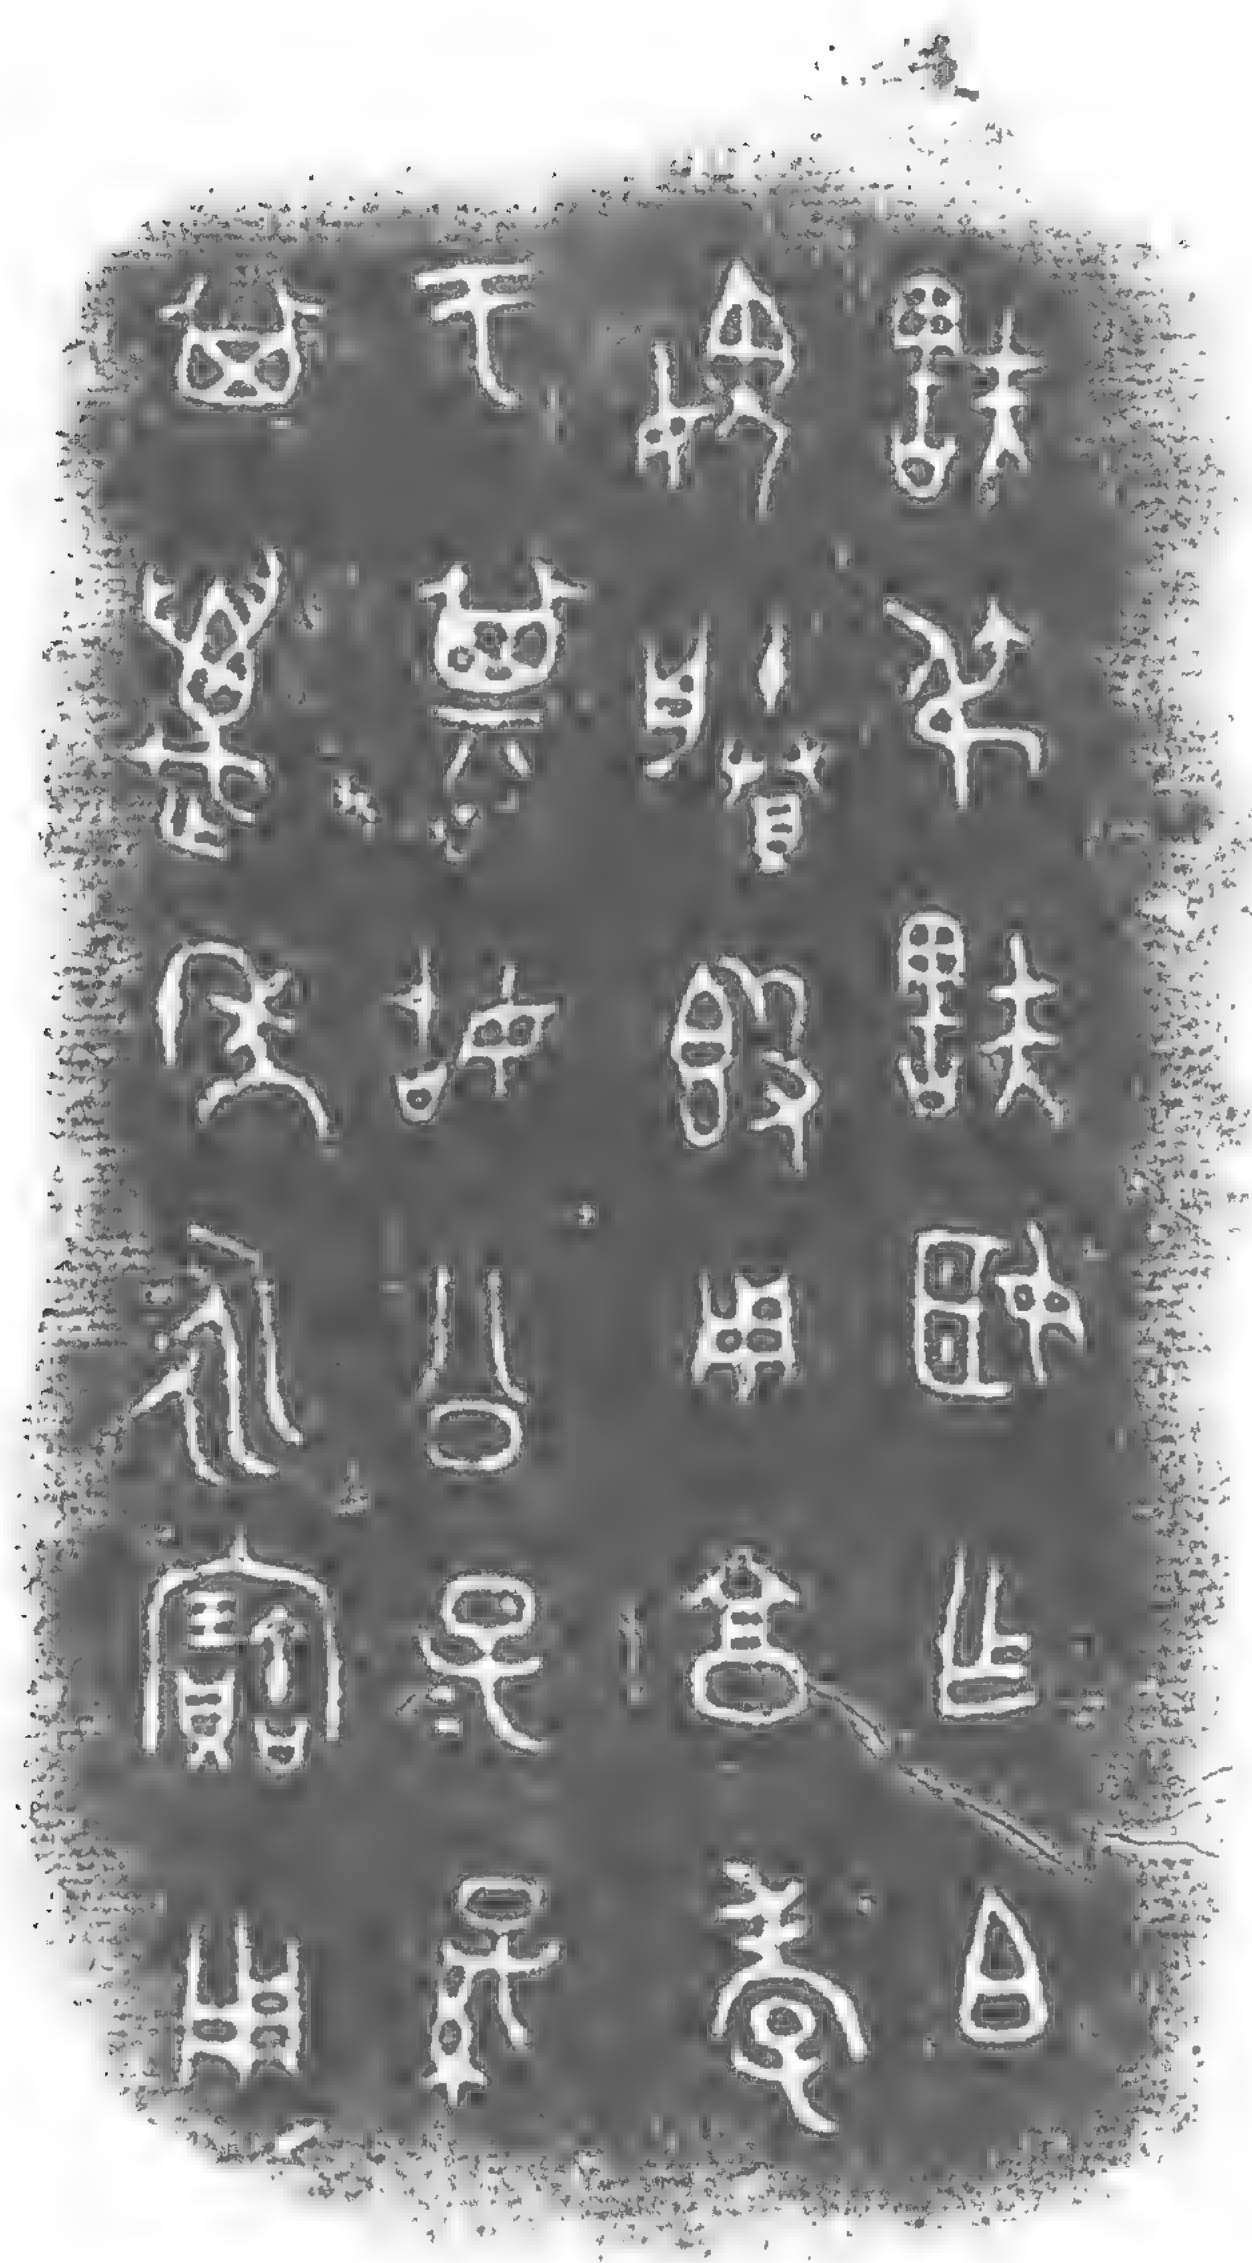 㝬叔㝬姬乍白
媿賸簋用享孝
于其姑公子=孫
其萬年永寶用